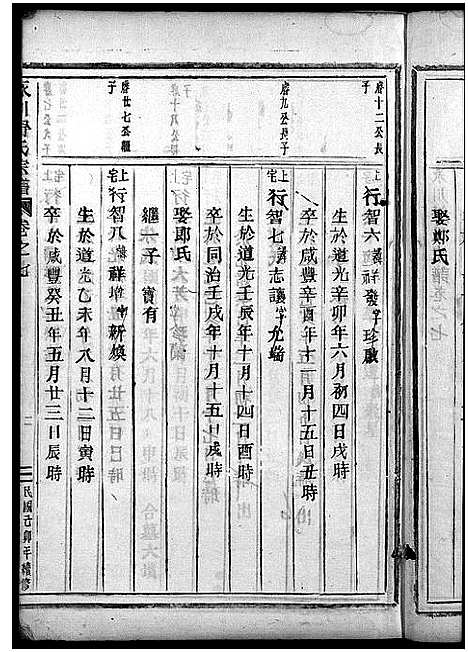 娶郎氏
序十二公長子
上宅行智六諱祥發字珍啟
生於道光辛卯年六月初四日戌時
卒於咸豐辛酉年十一月十五日丑時
序九公長子
上宅行智七諱志讓字允端
生於道光壬辰年十月十四日酉時
卒於同治壬戌年十月十五日戌時
娶郎氏
繼一子 寶有
序廿七公繼子
上宅行智八諱祥增字新煥
生於道光乙未年八月十二日寅時
卒於咸豐癸丑年五月廿三日辰時
氏宗譜 卷之七
民國己卯年續修